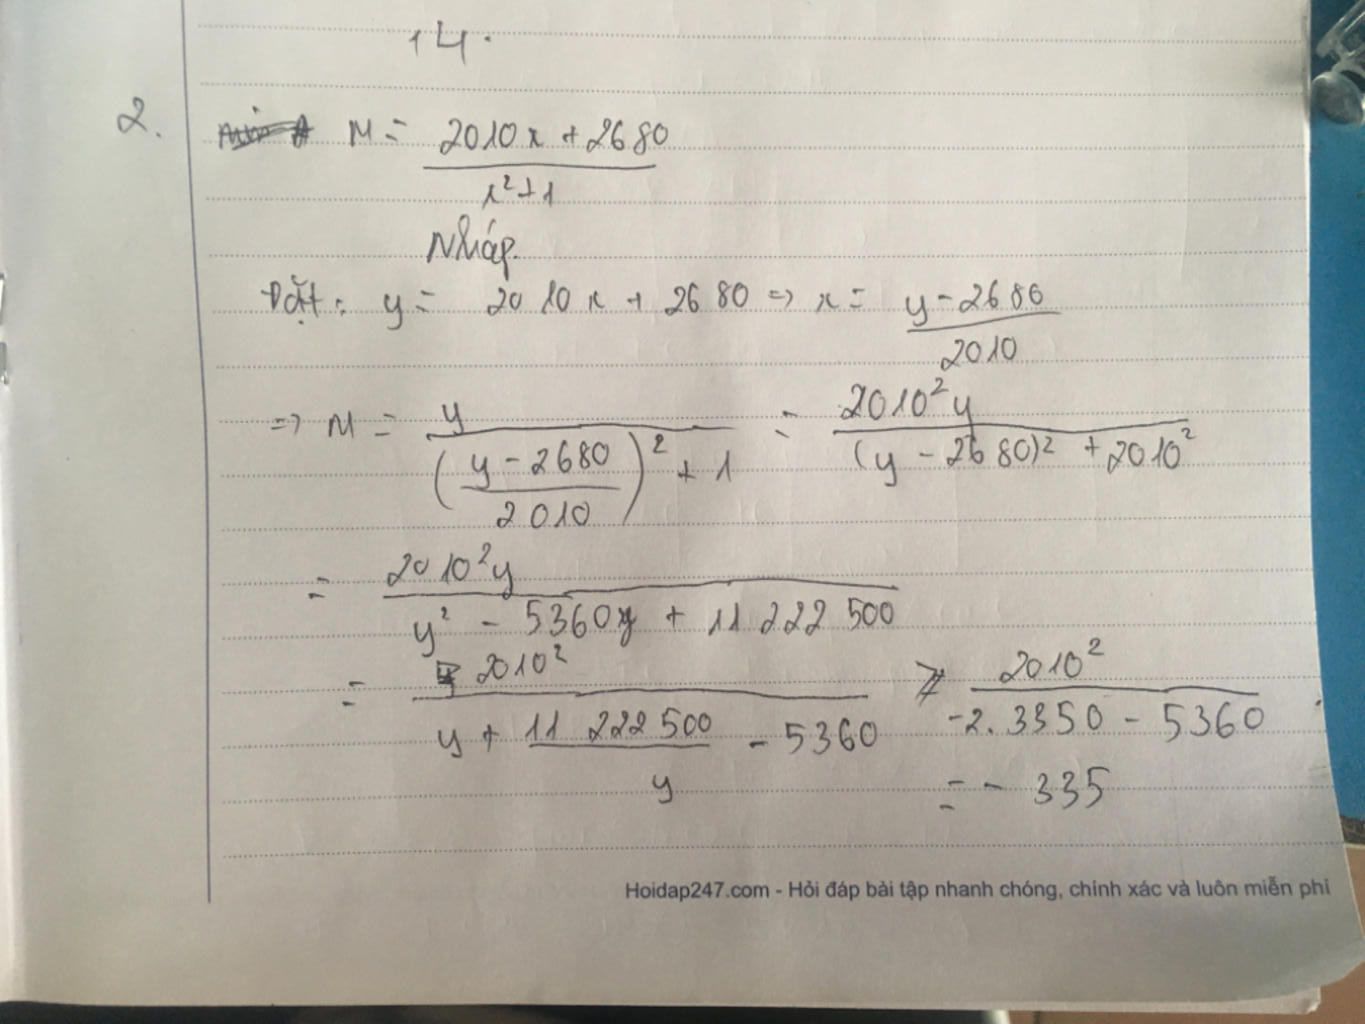 14.
2. M = (2010x + 2680) / (x² + 1)
Nháp.
Đặt: y = 2010x + 2680 => x = (y - 2680) / 2010
=> M = y / (((y - 2680) / 2010)² + 1) = 2010²y / ((y - 2680)² + 2010²)
= 2010²y / (y² - 5360y + 11 222 500)
= 2010² / (y + 11 222 500 / y - 5360) ≥ 2010² / (-2.3350 - 5360)
= - 335
Hoidap247.com - Hỏi đáp bài tập nhanh chóng, chính xác và luôn miễn phí